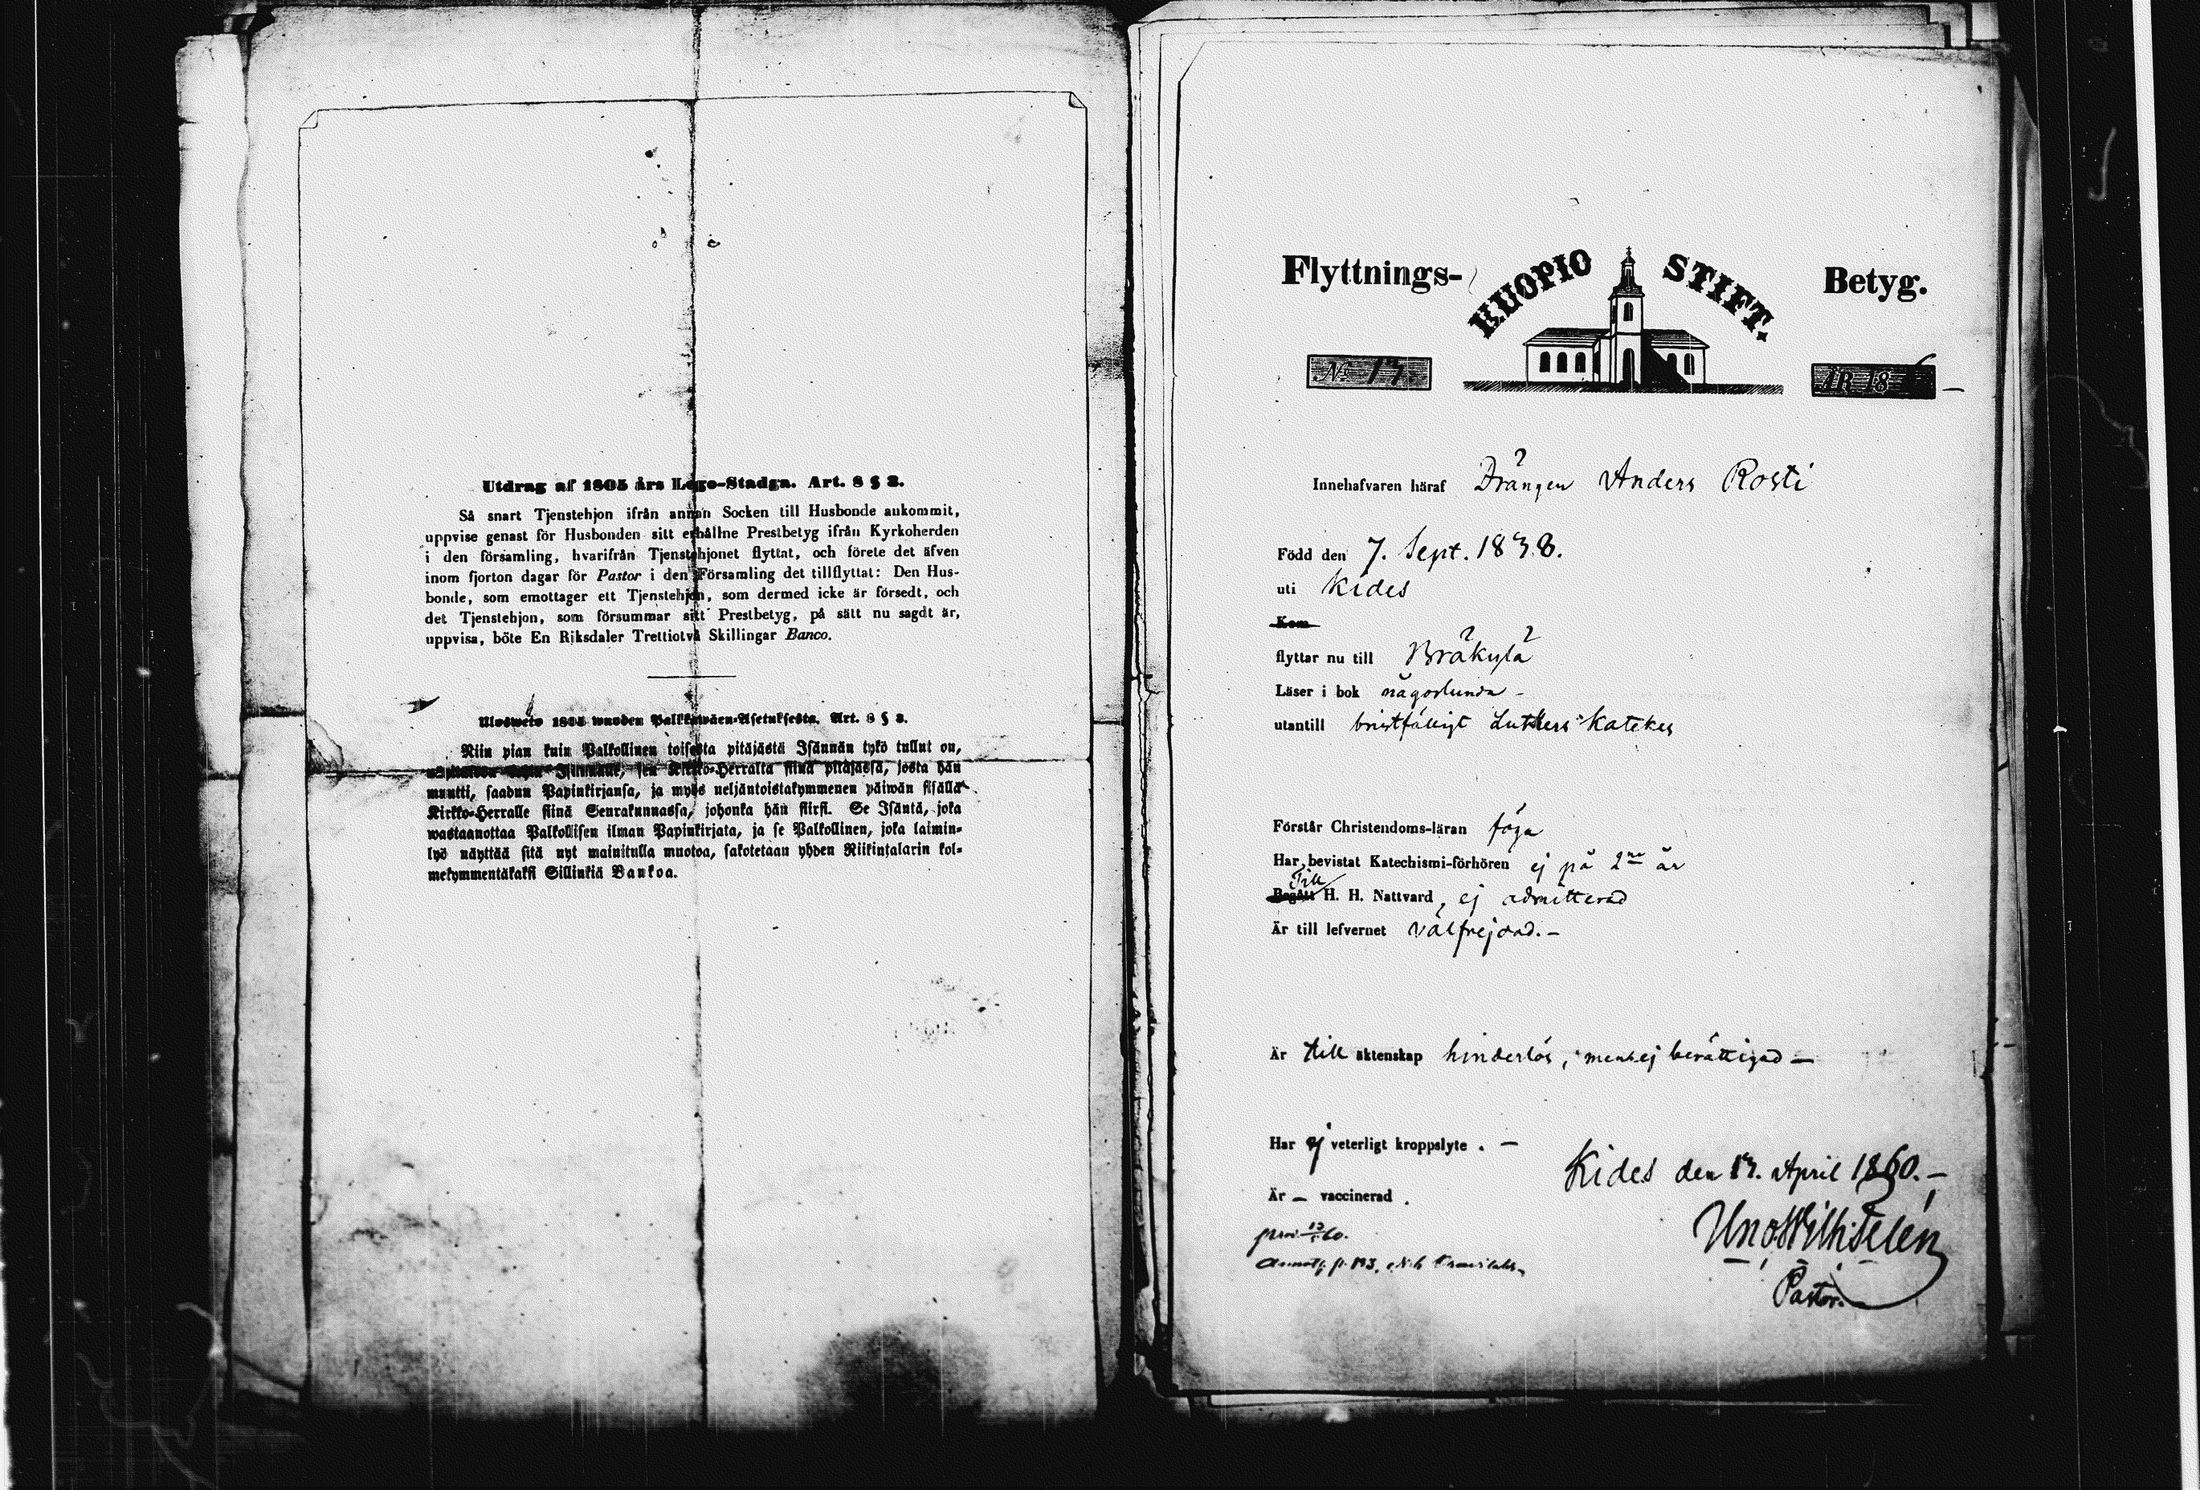 Utdrag af 1805 års Lego-Stadga. Art. 8 § 3.
Så snart Tjenstehjon ifrån annan Socken till Husbonde ankommit,
uppvise genast för Husbonden sitt erhållne Prestbetyg ifrån Kyrkoherden
i den församling, hvarifrån Tjenstehjonet flyttat, och förete det äfven
inom fjorton dagar för Pastor i den Församling det tillflyttat: Den Hus-
bonde, som emottager ett Tjenstehjon, som dermed icke är försedt, och
det Tjenstehjon, som försummar sitt Prestbetyg, på sätt nu sagdt är,
uppvisa, böte En Riksdaler Trettiotvå Skillingar Banco.
Ulosweto 1805 wuoden Palkkawäen-Asetuksesta. Art. 8 § 3.
Niin pian kuin Palkollinen toisesta pitäjästä Isännän tykö tullut on,
Isännälle, sen Kirkko-Herralta siinä pitäjässä, josta hän
muutti, saadun Papinkirjansa, ja myös neljäntoistakymmenen päiwän sisällä
Kirkko-Herralle siinä Seurakunnassa, johonka hän siirsi. Se Isäntä, joka
wastaanottaa Palkollisen ilman Papinkirjata, ja se Palkollinen, joka laimin-
lyö näyttää sitä nyt mainitulla muotoa, sakotetaan yhden Riikintalarin kol-
mekymmentäkaksi Sillinkiä Bankoa.
Flyttnings- KUOPIO STIFT. Betyg.
No 17. ÅR 186 –
Innehafvaren häraf Drängen Anders Rosti
Född den 7. Sept. 1838.
uti Kides
Kom
flyttar nu till Bräkylä
Läser i bok någorlunda –
utantill bristfälligt Luthers Katekes
Förstår Christendoms-läran föga
Har bevistat Katechismi-förhören ej på 2ne år
Till
Begått H. H. Nattvard, ej admitterad
Är till lefvernet välfrejdad. –
Är till äktenskap hinderlös, men ej berättigad –
Har ej veterligt kroppslyte . –
Kides den 17. April 1860. –
Är – vaccinerad .
Uno Wilh: Telén
Pastor.